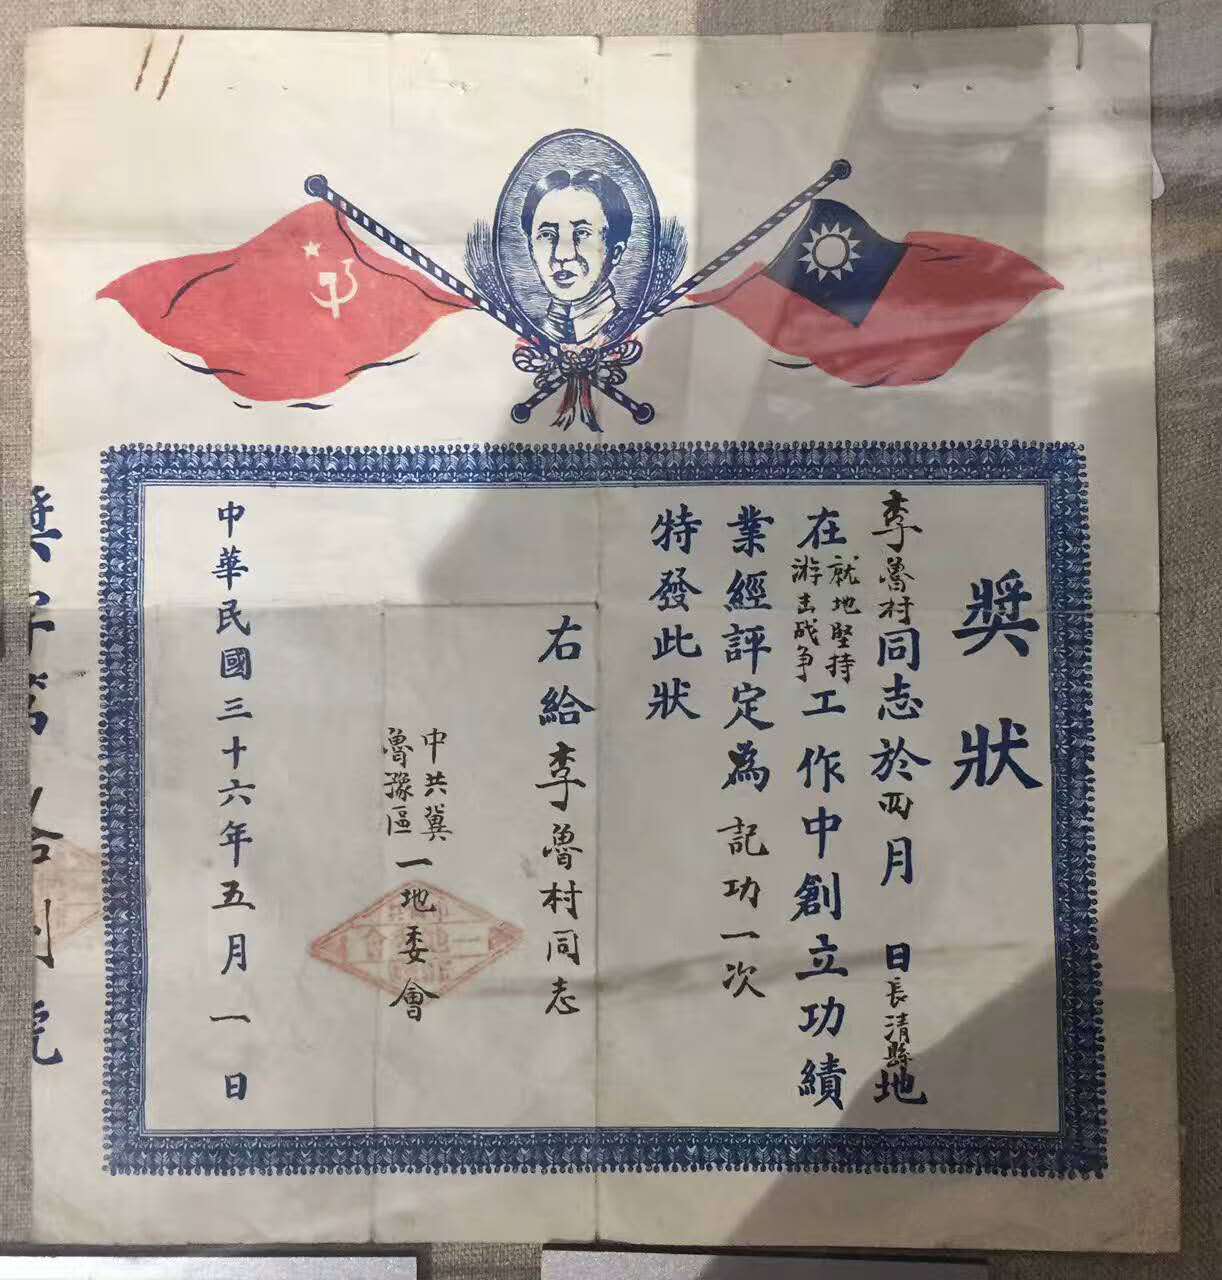 獎狀
李魯村同志於四月 日長清縣地
在就地堅持游击战争工作中創立功績
業經評定為記功一次
特發此狀
右給李魯村同志
中共冀魯豫區一地委會
中華民國三十六年五月一日
獎字第
號